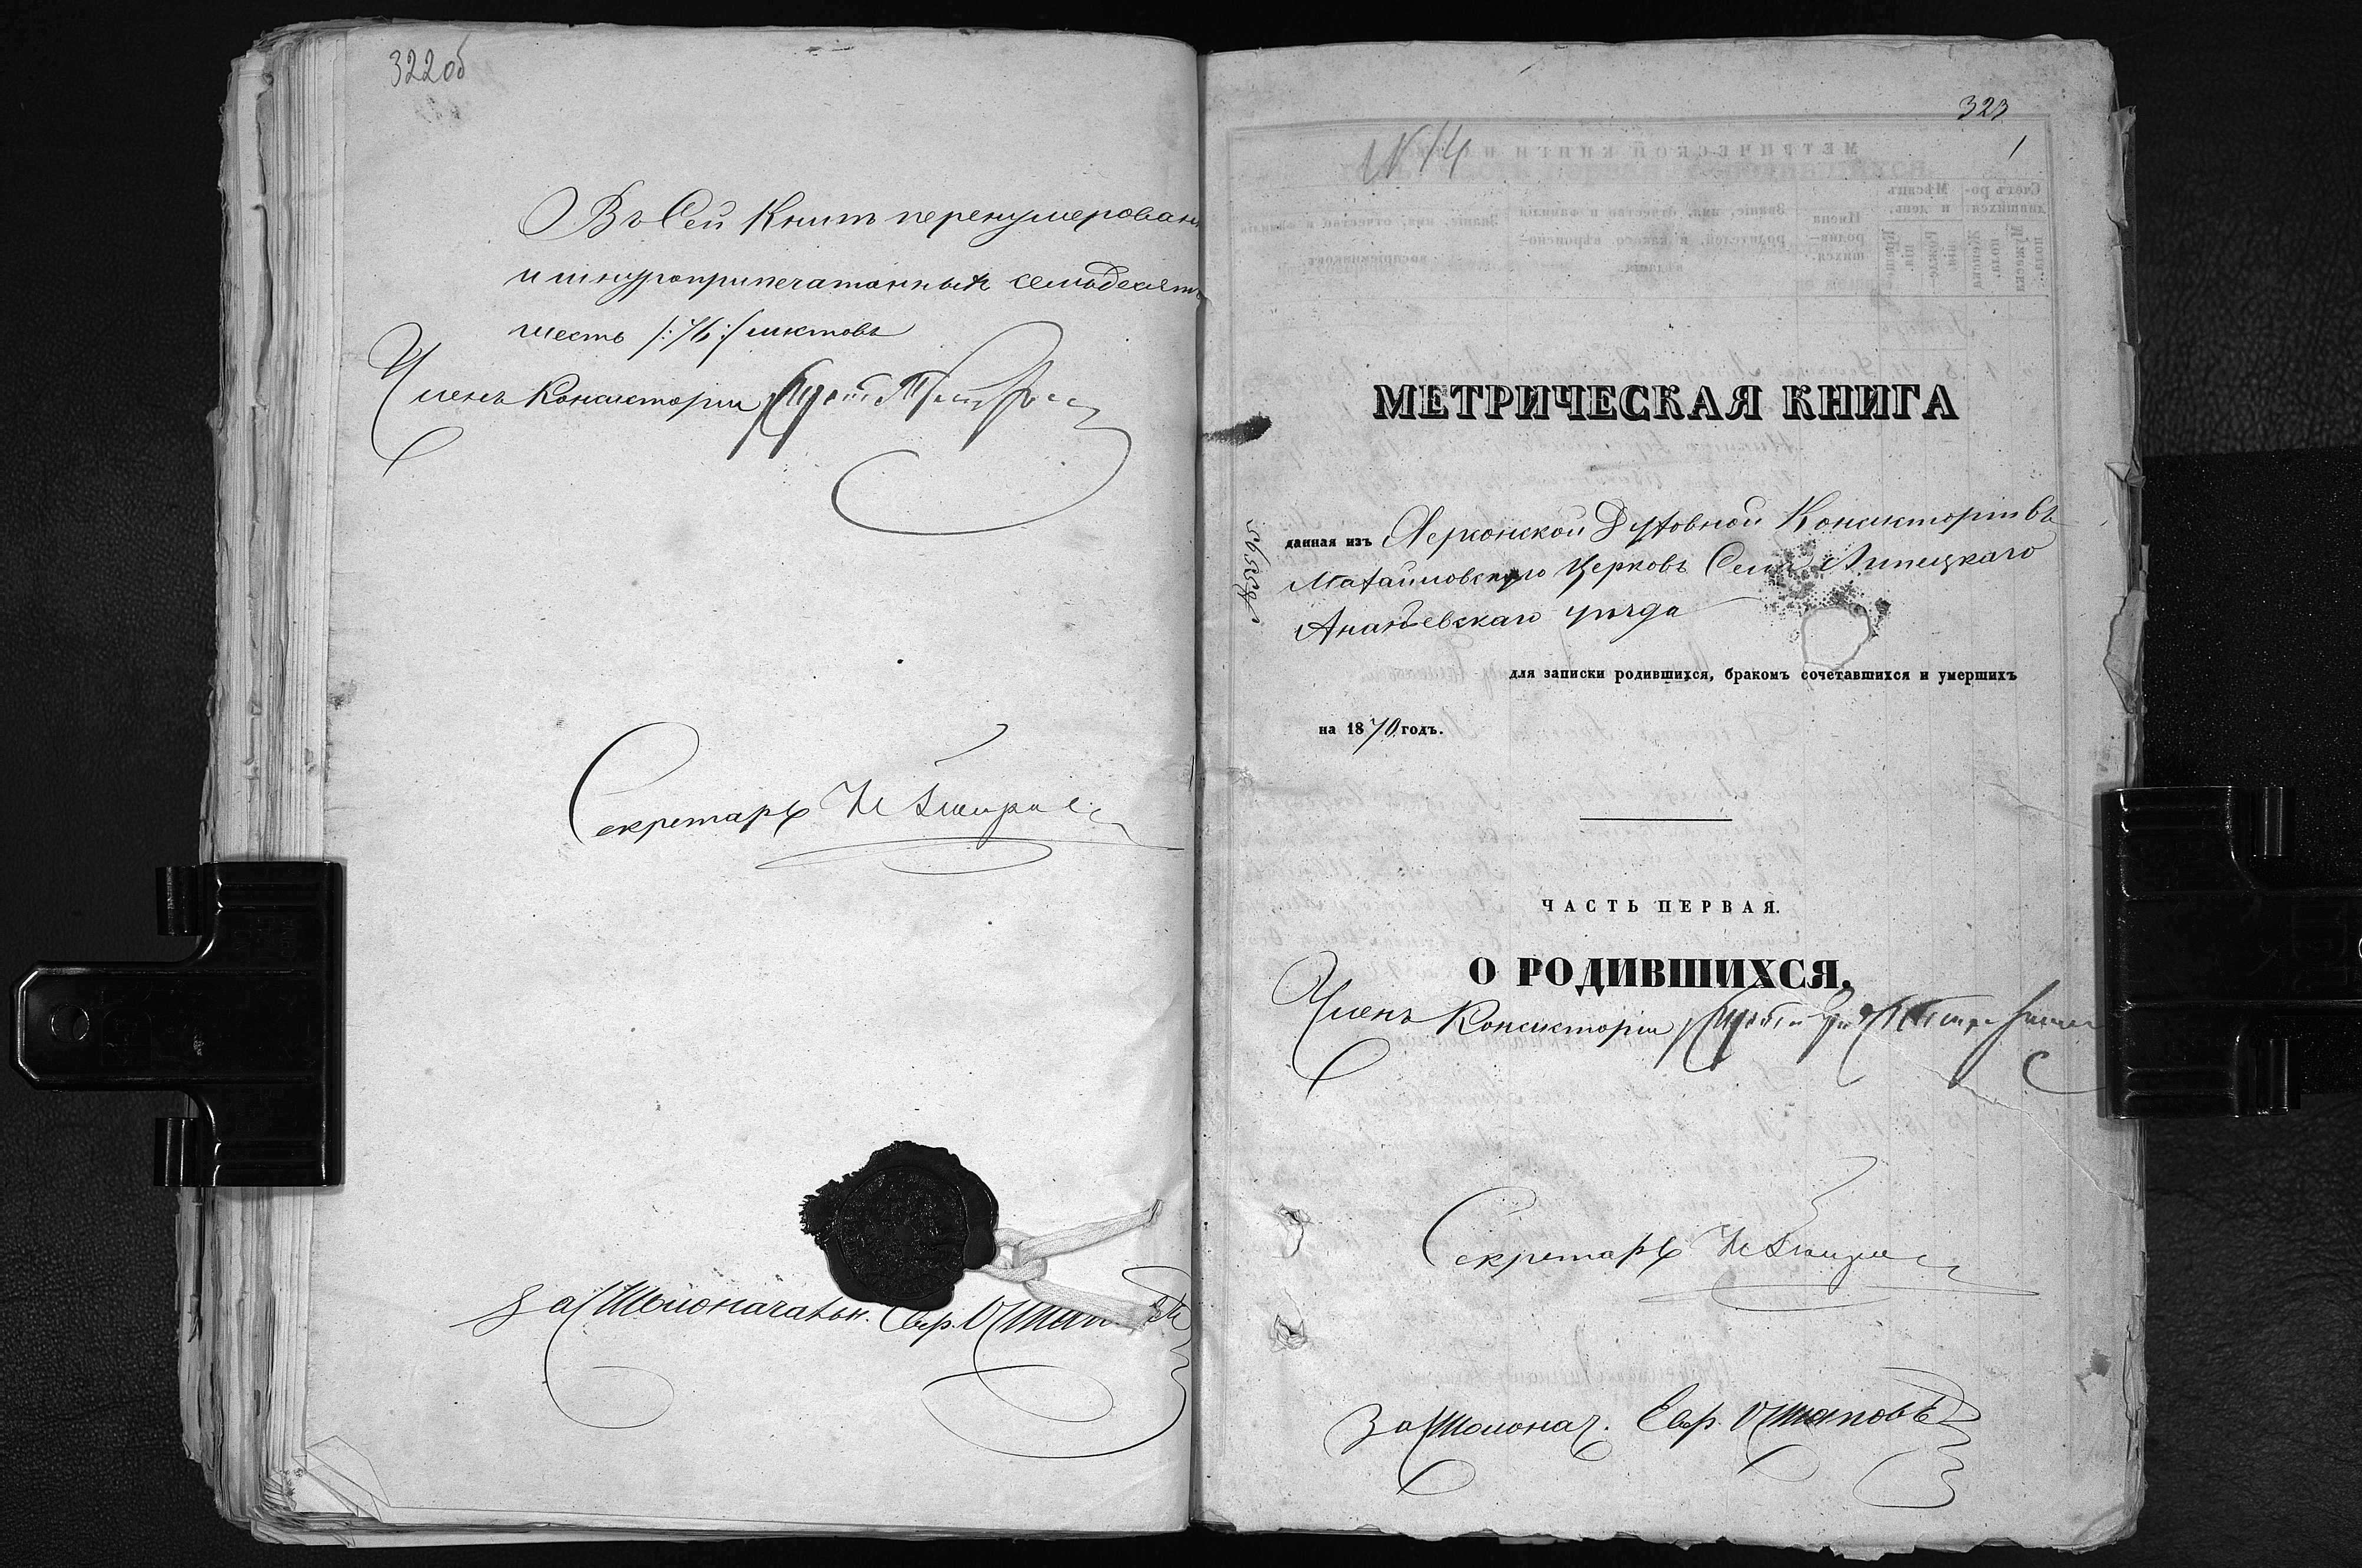 322об
Въ Сей Книгѣ перенумерован
и шнуроприпечатанныхъ семьдесятъ
шесть /:76:/ листовъ
Членъ Консисторіи
Секретарь
За Столоначальн. Евр. Остаповъ
323
1
№ 14
МЕТРИЧЕСКАЯ КНИГА
данная изъ Херсонской Духовной Консисторіи въ
Михайловскую Церковь Села Липецкаго
Ананьевскаго уѣзда
для записки родившихся, бракомъ сочетавшихся и умершихъ
на 1870 годъ.
ЧАСТЬ ПЕРВАЯ.
О РОДИВШИХСЯ.
Членъ Консисторіи
Секретарь
За Столонач. Евр. Остаповъ